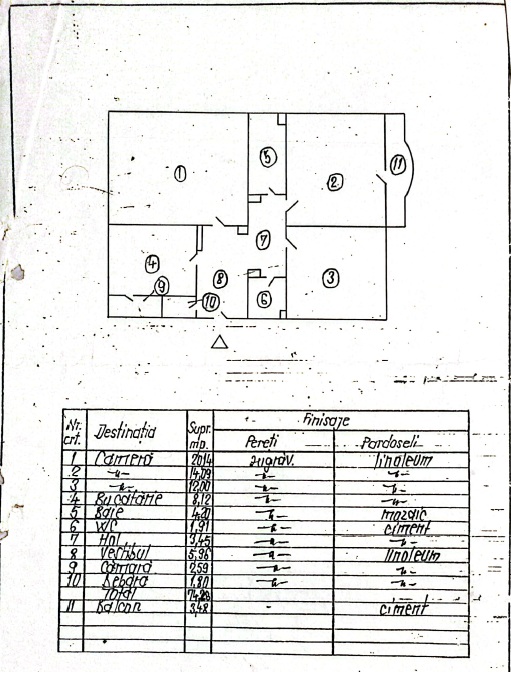 1
5
2
11
7
4
8
3
9
10
6
Nr. crt. Destinația Supr. mp. Finisaje
Pereți Pardoseli
1 Cameră 20,14 zugrăv. linoleum
2 —〃— 14,09 —〃— —〃—
3 —〃— 12,00 —〃— —〃—
4 Bucătărie 8,12 —〃— —〃—
5 Baie 4,20 —〃— mozaic
6 WC 1,91 —〃— ciment
7 Hol 3,45 —〃— —〃—
8 Vestibul 5,96 —〃— linoleum
9 Cămară 2,59 —〃— —〃—
10 Debara 1,80 —〃— —〃—
Total 74,26
11 Balcon 3,48 - ciment